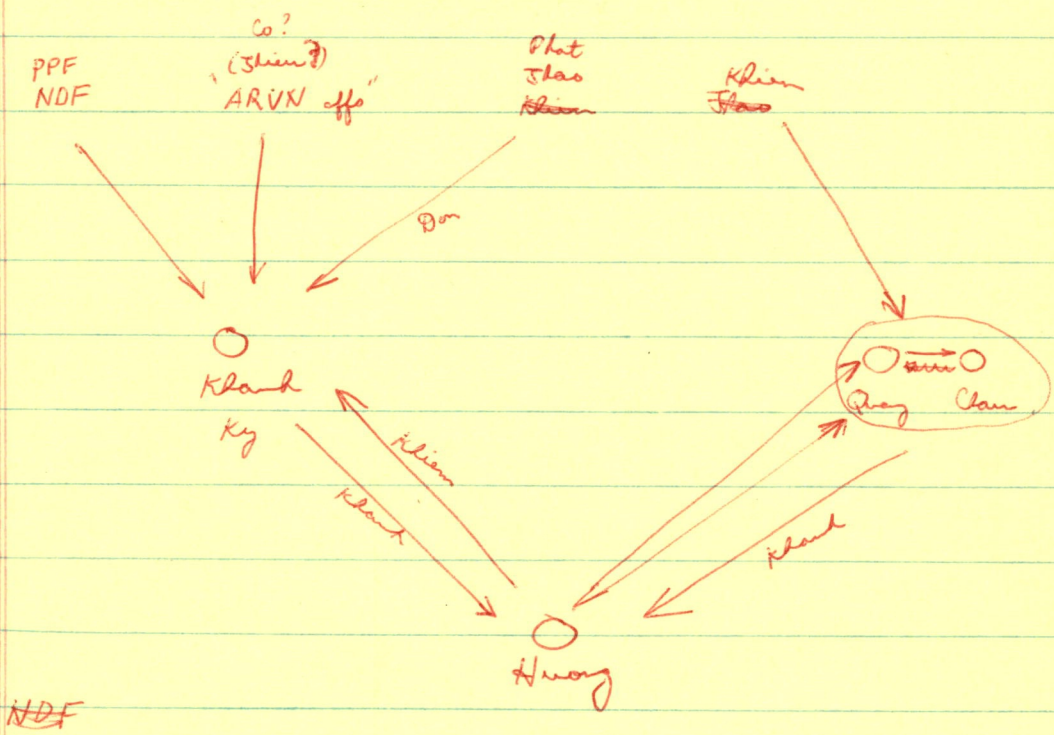 PPF
NDF
Co?
(Thieu?)
"ARVN offs"
Phat
Thao
Khiem
Khiem
Thao
Don
Khanh
Ky
Khiem
Khanh
Quay Chau
Khanh
Huong
NDF